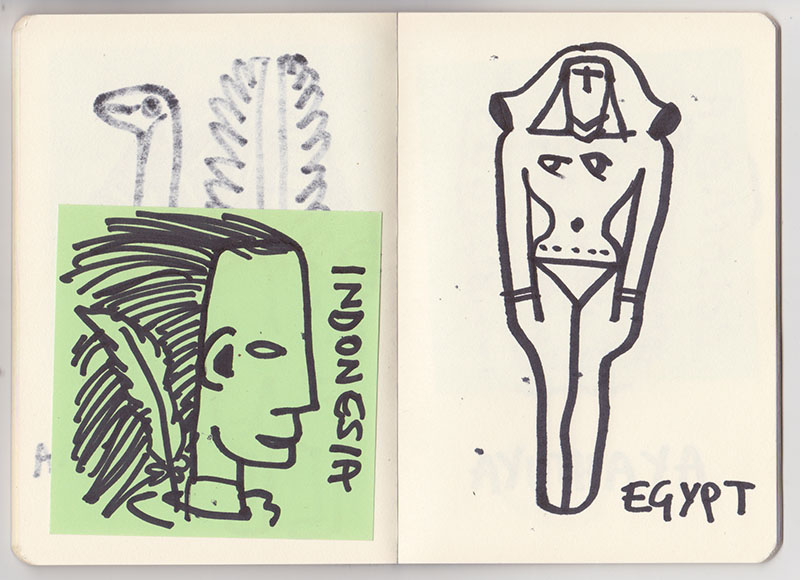 INDONESIA
EGYPT